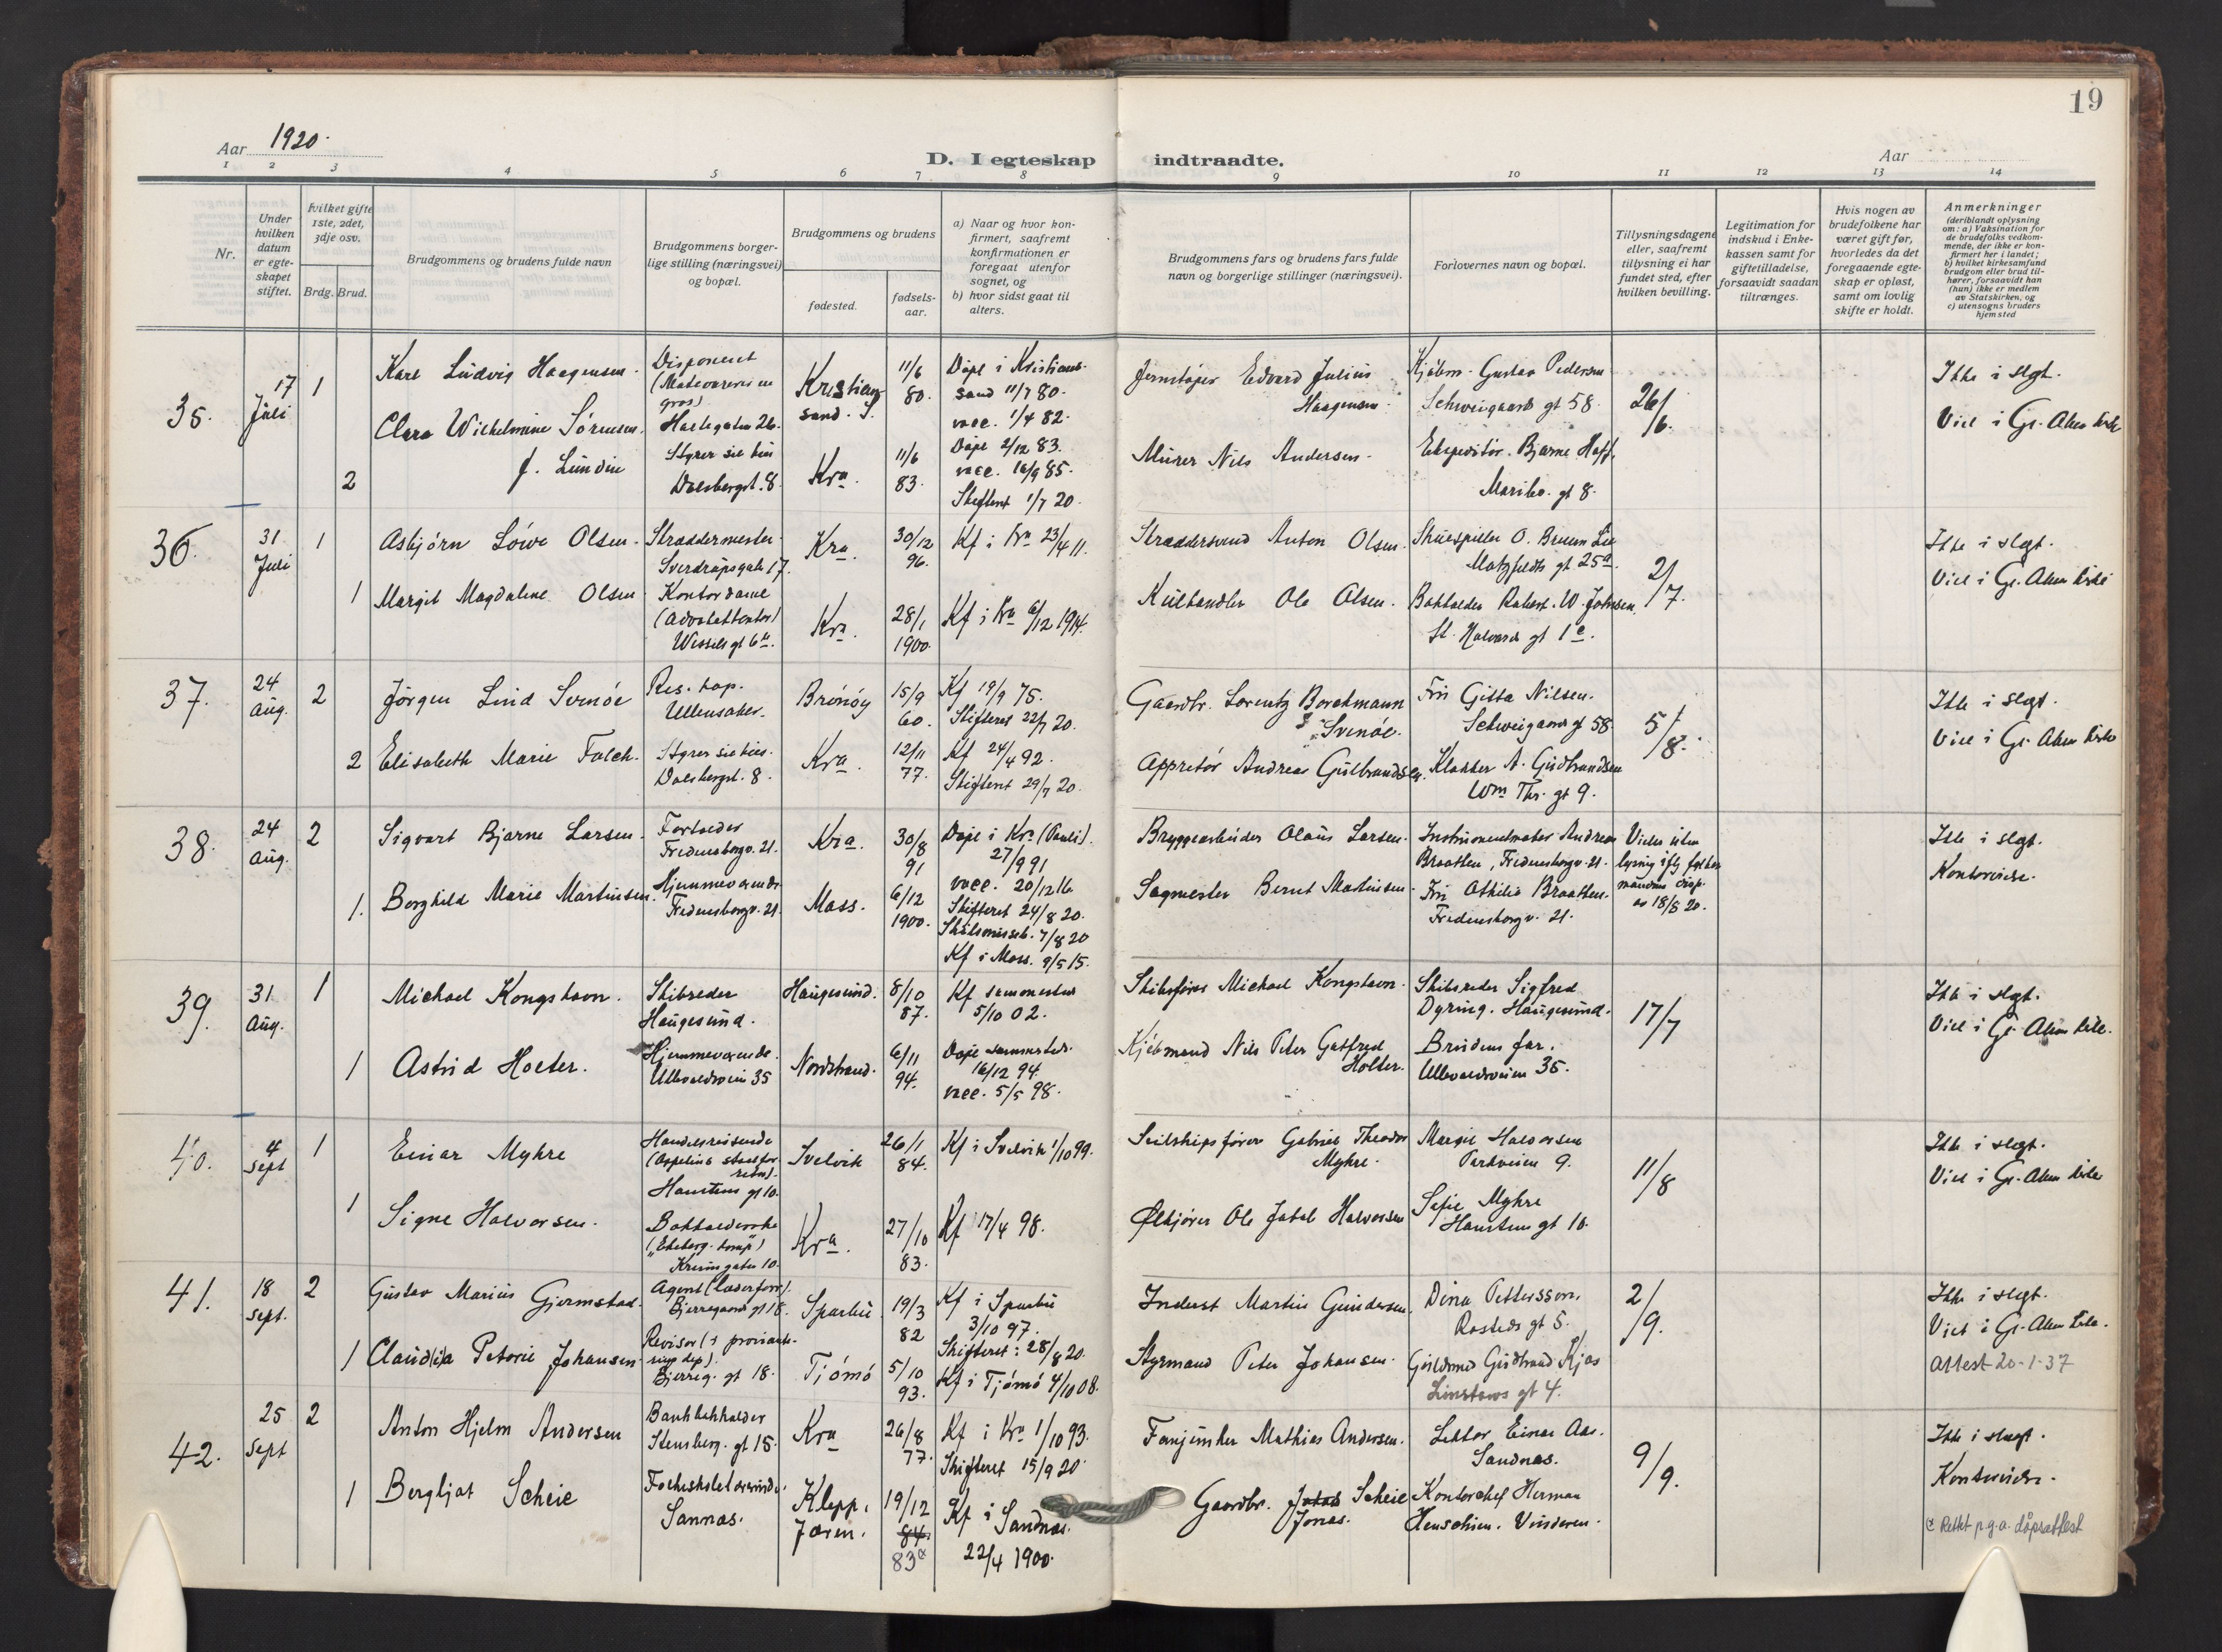 19
Aar 1920.
D. I egteskap indtraadte.
Aar
1 2 3 4 5 6 7 8 9 10 11 12 13 14
Nr.
Under hvilken datum er egteskapet stiftet.
Hvilket gifte 1ste, 2det, 3dje osv.
Brdg. Brud.
Brudgommens og brudens fulde navn
Brudgommens borgerlige stilling (næringsvei) og bopæl.
Brudgommens og brudens
fødested.
fødselsaar.
a) Naar og hvor konfirmert, saafremt konfirmationen er foregaat utenfor sognet, og
b) hvor sidst gaat til alters.
Brudgommens fars og brudens fars fulde navn og borgerlige stillinger (næringsvei).
Forlovernes navn og bopæl.
Tillysningsdagene eller, saafremt tillysning ei har fundet sted, efter hvilken bevilling.
Legitimation for indskud i Enkekassen samt for giftetilladelse, forsaavidt saadan tiltrænges.
Hvis nogen av brudefolkene har været gift før, hvorledes da det foregaaende egteskap er opløst, samt om lovlig skifte er holdt.
Anmerkninger
(deriblandt oplysning om: a) Vaksination for de brudefolks vedkommende, der ikke er konfirmert her i landet; b) hvilket kirkesamfund brudgom eller brud tilhører, forsaavidt han (hun) ikke er medlem av Statskirken, og c) utensogns bruders hjemsted
35. 17 Juli 1
Karl Ludvig Haagensen.
Disponent
Kristiansand. S.
11/6 80.
Døpt i Kristiansand 11/7 80.
vacc. 1/4 82.
Edvard Julius Haagensen.
Kjøbm. Gustav Pedersen
Schweigaards gt 58.
26/6.
Ikke i slegt.
Viet i Gl. Aker kirke
2
Clara Wilhelmine Sörensen.
f. Lundin
Dalsbergst. 8.
Kra.
11/6 83.
Døpt 2/12 83.
vacc. 16/9 85.
Skiftent 1/7 20.
Murer Nils Andersen.
Ekspeditör. Bjarne Hoff,
Maribo. gt 8.
36. 31 Juli 1
Asbjörn Löwe Olsen.
Skræddermester
Sverdrupsgate 17.
Kra.
30/12 96.
Kf i Kra 23/4 11.
Skræddersvend Anton Olsen.
Skuespiller O. Bruun Lie
gt 25a.
2/7.
Ikke i slegt.
Viet i Gl. Aker kirke
1
Margit Magdalene Olsen
Kontordame
(Advokatkontor)
Wessels gt 6
Kra.
28/1 1900.
Kf i Kra 6/12 1914.
Kulhandler Ole Olsen.
Bokholder Robert. W. Johnsen.
St. Halvards gt 1e.
37. 24 Aug. 2
Jörgen Lind Svenöe
Res. kap.
Ullensaker.
Brönöy
15/9 60.
Kf 19/9 75.
Skifteret 22/7 20.
Gaardbr. Lorentz Borchmann
Svenöe.
Frk Gitta Nilsen.
Schweigaards gt 58.
5/8.
Ikke i slegt.
Viet i Gl. Aker kirke
2
Elisabeth Marie Falch.
Dalsbergst. 8.
Kra.
12/11 77.
Kf 24/4 92.
Skifteret 29/7 20.
Appretör Andreas Gulbrandsen.
A. Gudbrandsen
Wm Thr. gt 9.
38. 24 Aug. 2
Sigvart Bjarne Larsen.
Fredensborgv. 21.
Kra.
30/8 91
Døpt i Kra (Pauli).
27/9 91
vacc. 20/12 16
Skifteret 24/8 20.
Bryggearbeider Olaüs Larsen.
Instrumentmaker Andreas
Braathen, Fredensborgv. 21.
Vielse uten lysning iflg fylkesmandens disp. av 18/8 20.
Ikke i slegt.
Kontorvielse.
1.
Borghild Marie Martinsen.
Hjemmeværende.
Fredensborgv. 21.
Moss.
6/12 1900.
Skilsmisseb. 7/8 20
Kf i Moss. 9/5 15.
Sagmester Bernt Martinsen.
Frk Othilie Braathen.
Fredensborgv. 21.
39. 31 Aug. 1
Michael Kongshavn.
Skibsreder
Haugesund.
Haugesund.
8/10 87.
Kf sammesteds
5/10 02.
Skibsfører Michael Kongshavn.
Skibsreder Sigfred
Dyring. Haugesund.
17/7
Ikke i slegt.
Viet i Gl. Aker kirke.
1
Astrid Holter.
Hjemmeværende.
Ullevaalsveien 35
Nordstrand.
6/11 94.
Døpt sammesteds.
16/12 94.
vacc. 5/5 98.
Kjöbmand Nils Peter Gotfred
Holter.
Brudens far.
Ullevaalsveien 35.
40. 4 Sept 1
Einar Myhre
Handelsreisende
Hausmns gt 10.
Svelvik
26/1 84.
Kf i Svelvik 1/10 99.
Seilskipsfører Gabriel Theodor
Myhre.
Margit Halvorsen
Parkveien 9.
11/8
Ikke i slegt.
Viet i Gl. Aker kirke
1
Signe Halvorsen.
Bokholderske
Kra.
27/10 83.
Kf 17/4 98.
Ølkjører Ole Jakob Halvorsen
Sofie Myhre
gt 10.
41. 18 Sept. 2
Gustav Marius Gjermstad.
Agent
Bjerregaards gt 18.
Sparbu
19/3 82
Kf i Sparbu
3/10 97.
Skifteret: 28/8 20.
Inderst Martin Gundersen.
Dina Pettersson,
Rosteds gt 5.
2/9.
Ikke i slegt.
Viet i Gl. Aker kirke.
Attest 20-1-37
1
Claud(i)a Petorie Johansen
Revisor
Bjerreg. gt 18.
Tjömö
5/10 93.
Kf i Tjömö 4/10 08.
Styrmand Peter Johansen.
Guldsmed Gudbrand Kjos
Linstows gt 4.
42. 25 Sept 2
Anton Hjelm Andersen
Bankbokholder
Stensberg. gt 15.
Kra
26/8 77.
Kf i Kra 1/10 93.
Skifteret 15/9 20.
Fanejunker Mathias Andersen.
Lektor Einar Aas.
Sandnæs.
9/9.
Ikke i slegt.
Kontorvielse.
1
Bergljot Scheie
Folkeskolelærerinde.
Sannæs.
Klepp,
Jæren.
19/12 84. 83x
Kf i Sandnæs.
22/4 1900.
Gaardbr. Jakob Scheie
Jonas.
Kontorchef Herman
Henschien. Vinderen.
x Rettet p.g.a. dåpsattest